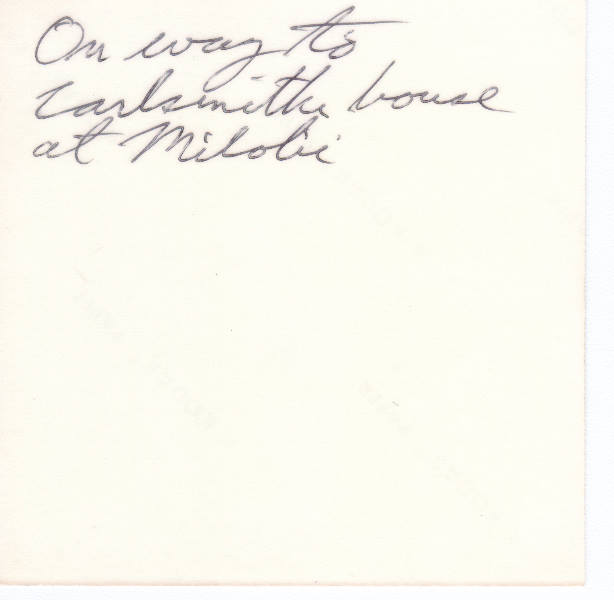 On way to
Carlsmith house
at Milolii